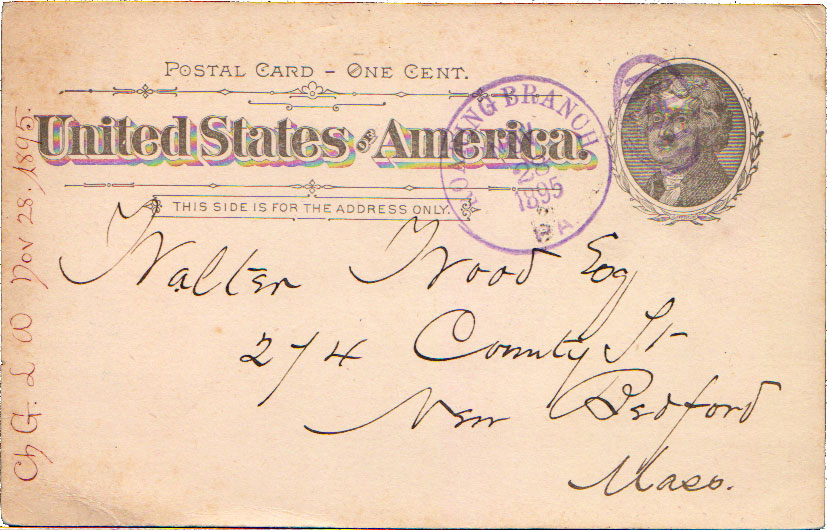 POSTAL CARD – ONE CENT.
United States OF America.
THIS SIDE IS FOR THE ADDRESS ONLY.
ROARING BRANCH
NOV
28
1895
PA
Walter Wood Esq
274 County St
New Bedford
Mass.
Nov 28, 1895.